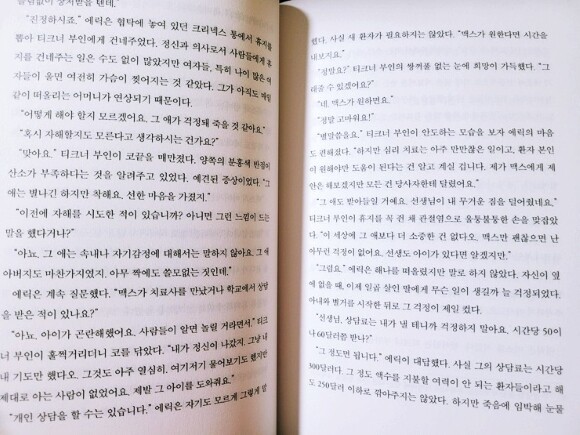 "진정하시죠." 에릭은 협탁에 놓여 있던 크리넥스 통에서 휴지를
뽑아 티크너 부인에게 건네주었다. 정신과 의사로서 사람들에게 휴
지를 건네주는 일은 수도 없이 많았지만 여자들, 특히 나이 많은 여
자들이 울면 여전히 가슴이 찢어지는 것 같았다. 그가 아직도 매일
같이 떠올리는 어머니가 연상되기 때문이다.
"어떻게 해야 할지 모르겠어요. 그 애가 걱정돼 죽을 것 같아요."
"혹시 자해할지도 모른다고 생각하시는 건가요?"
"맞아요." 티크너 부인이 코끝을 매만졌다. 양쪽의 분홍색 반점이
산소가 부족하다는 것을 알려주고 있었다. 예견된 증상이었다. "그
애는 별나긴 하지만 착해요. 선한 마음을 가졌지."
"이전에 자해를 시도한 적이 있습니까? 아니면 그런 느낌이 드는
말을 했다거나?"
"아뇨, 그 애는 속내나 자기감정에 대해서는 말하지 않아요. 그 애
아버지도 마찬가지였지. 아무 짝에도 쓸모없는 짓인데."
에릭은 계속 질문했다. "맥스가 치료사를 만났거나 학교에서 상담
을 받은 적이 있나요?"
"아뇨, 아이가 곤란해했어요. 사람들이 알면 놀릴 거라면서." 티크
너 부인이 훌쩍거리더니 코를 닦았다. "내가 정신이 나갔지, 그냥 내
내 기도만 했다오. 그것도 아주 열심히. 여기저기 물어보기도 했지만
제대로 아는 사람이 없었어요. 제발 그 아이를 도와줘요."
"개인 상담을 할 수는 있습니다." 에릭은 자기도 모르게 그렇게 말
했다. 사실 새 환자가 필요하지는 않았다. "맥스가 원한다면 시간을
내보지요."
"정말요?" 티크너 부인의 쌍꺼풀 없는 눈에 희망이 가득했다. "그
래줄 수 있겠어요?"
"네, 맥스가 원하면요."
"정말 고마워요!"
"별말씀을요." 티크너 부인이 안도하는 모습을 보자 에릭의 마음
도 편해졌다. "하지만 심리 치료는 아주 만만찮은 일이고, 환자 본인
이 원해야만 도움이 된다는 건 알고 계실 겁니다. 제가 맥스에게 제
안은 해보겠지만 모든 건 당사자한테 달렸어요."
"그 애도 받아들일 거예요. 선생님이 내 무거운 짐을 덜어줬네요."
티크너 부인이 휴지를 꼭 쥔 채 관절염으로 울퉁불퉁한 손을 맞잡았
다. "이 세상에 그 애보다 더 소중한 건 없다오. 맥스만 괜찮으면 난
아무런 걱정이 없어요. 선생도 아이가 있다면 알겠지만."
"그럼요." 에릭은 해나를 떠올렸지만 말로 하지 않았다. 자신이 옆
에 없을 때, 이제 일곱 살인 딸에게 무슨 일이 생길까 늘 걱정되었다.
아내와 별거를 시작한 뒤로 그 걱정이 제일 컸다.
"선생님, 상담료는 내가 낼 테니까 걱정하지 말아요. 시간당 50이
나 60달러쯤 받나?"
"그 정도면 됩니다." 에릭이 대답했다. 사실 그의 상담료는 시간당
300달러다. 그 정도 액수를 지불할 여력이 안 되는 환자들이라고 해
도 250달러 이하로 깎아주지는 않았다. 하지만 죽음에 임박해 눈물